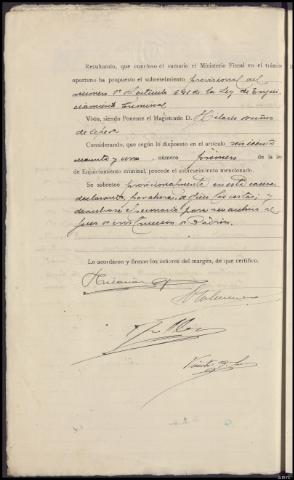 Resultando, que concluso el sumario el Ministerio Fiscal en el trámite
oportuno ha propuesto el sobreseimiento provisional del
número 1º artículo 641 de la Ley de Enjui-
ciamiento Criminal
Visto, siendo Ponente el Magistrado D. Hilario
de
Considerando, que según lo dispuesto en el artículo seiscientos
cuarenta y uno número primero de la ley
de Enjuiciamiento criminal, procede el sobreseimiento mencionado.
Se sobresee provisionalmente en esta causa
declarando por ahora de oficio las costas; y
devuélvase el sumario para su archivo al
Juez de instrucción de
Lo acordaron y firman los señores del margen, de que certifico.